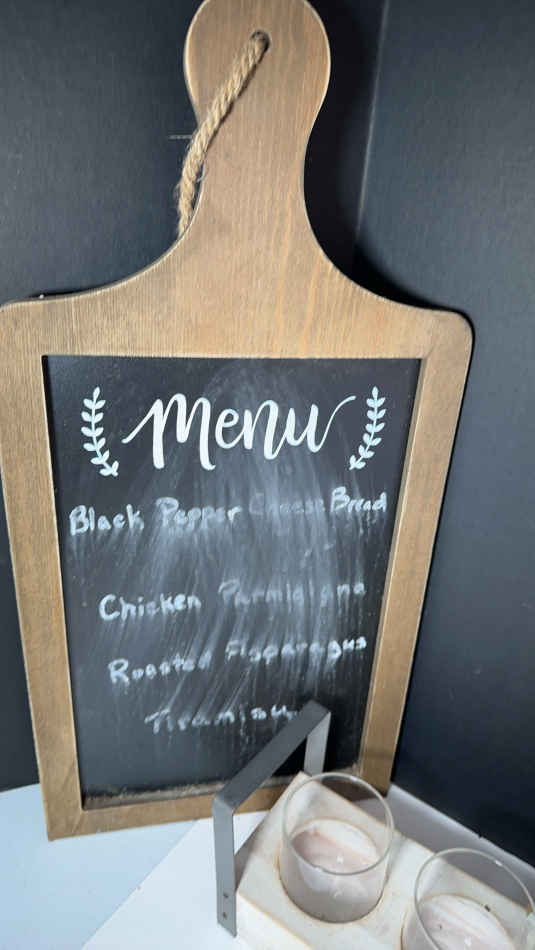 Menu
Black Pepper Cheese Bread
Chicken Parmigiana
Roasted Asparagus
Tiramisu